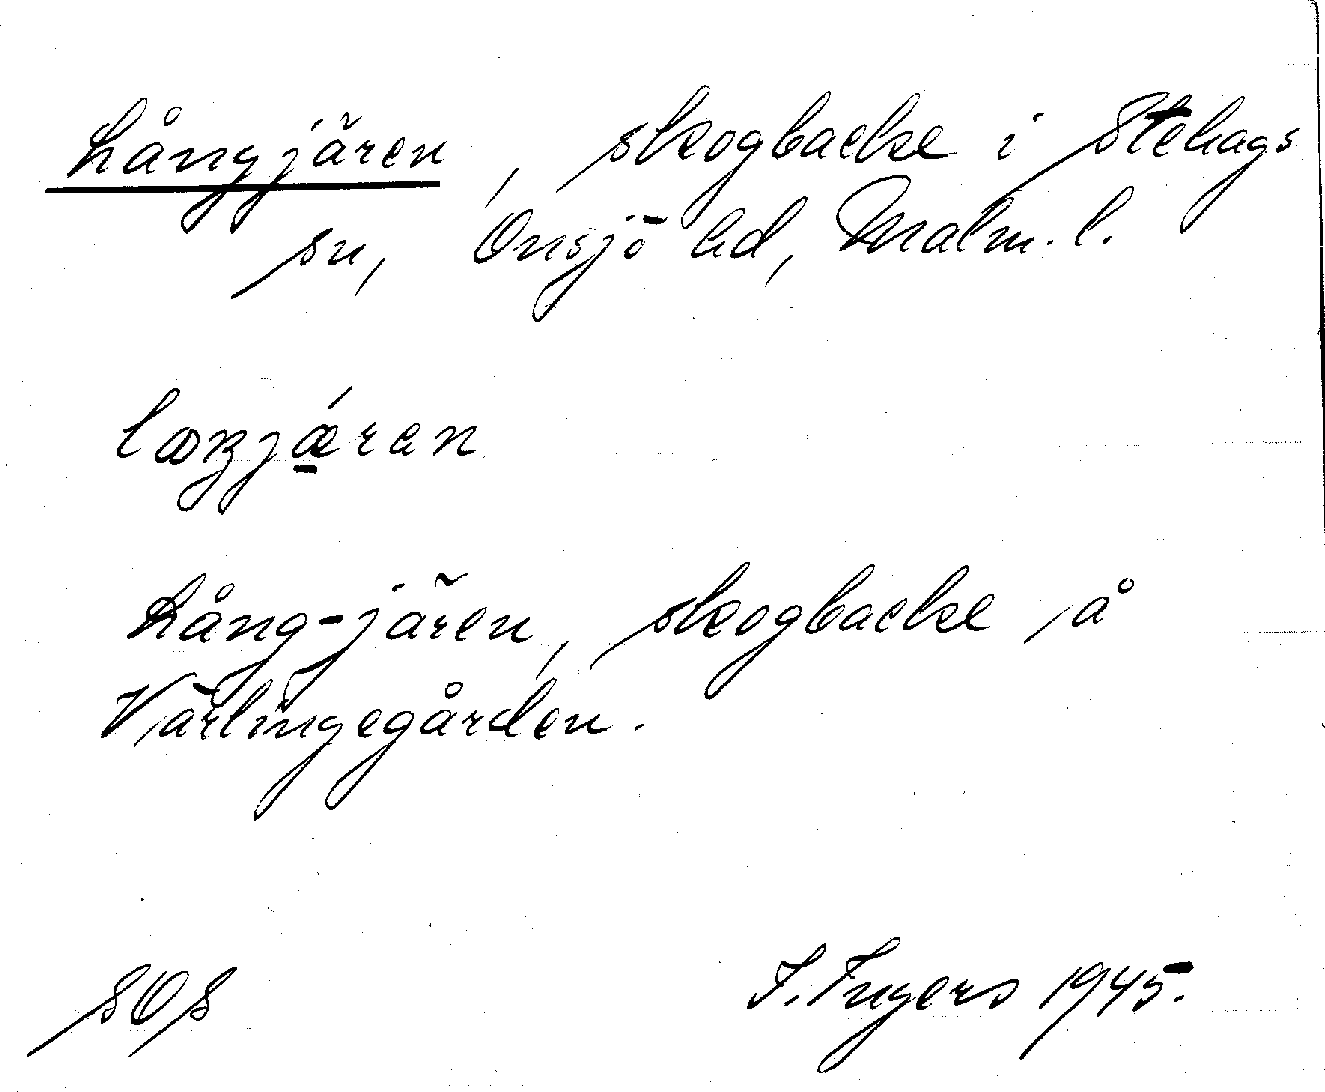 Långjären, skogbacke i Stehags
sn, Onsjö hd, Malm. l.
laŋjǽ̱ran
Lång-jären, skogbacke å
Värlingegården.
SOS I. Ingers 1945.